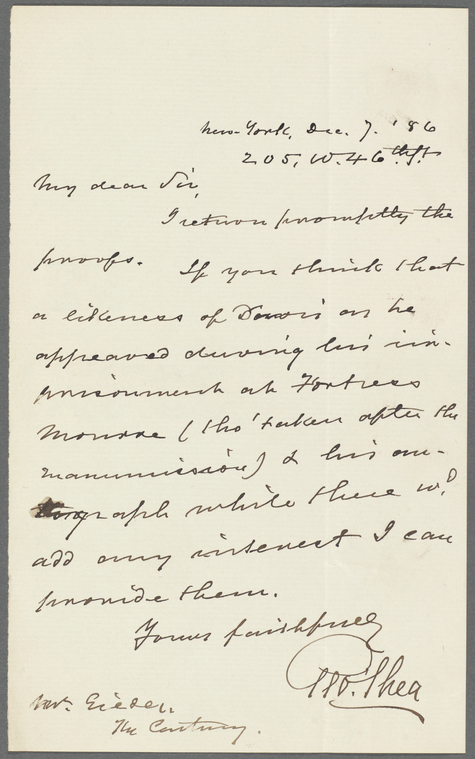 New-York, Dec. 7. '86
205, W. 46th St.
My dear Sir,
I return promptly the
proofs. If you think that
a likeness of Davis as he
appeared during his im-
prisonment at Fortress
Monroe (tho' taken after the
manumission) & his au-
tograph while there wd
add any interest I can
provide them.
Yours faithfully
Geo. Shea
Mr. Gilder,
The Century.